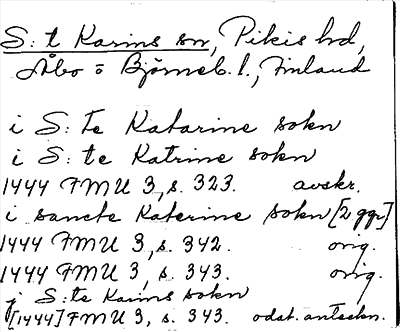 S:t Karins sn, Pikis hd,
Åbo o Björneb. l., Finland
i S:te Katarine sokn
i S:te Katrine sokn
1444 FMU 3, s. 323. avskr.
i sancte Katerine sokn [2 ggr]
1444 FMU 3, s. 342. orig.
1444 FMU 3, s. 343. orig.
j S:te Karins sokn
[1444] FMU 3, s. 343. odat. anteckn.